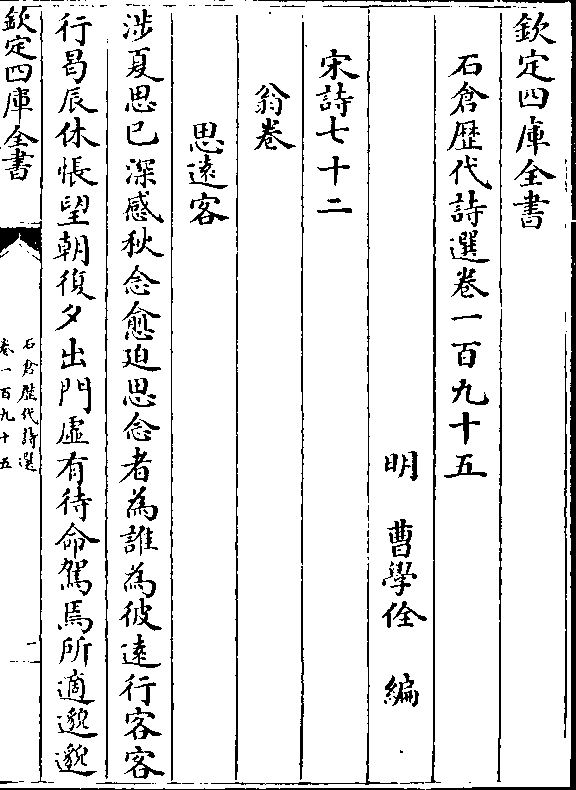 欽定四庫全書
石倉歴代詩選卷一百九十五
明 曹學佺 編
宋詩七十二
翁卷
思遠客
涉夏思已深感秋念愈迫思念者為誰為彼逺行客客
行曷辰休悵望朝復夕出門虛有待命駕焉所適邈邈
欽定四庫全書
石倉歴代詩選
卷一百九十五
一